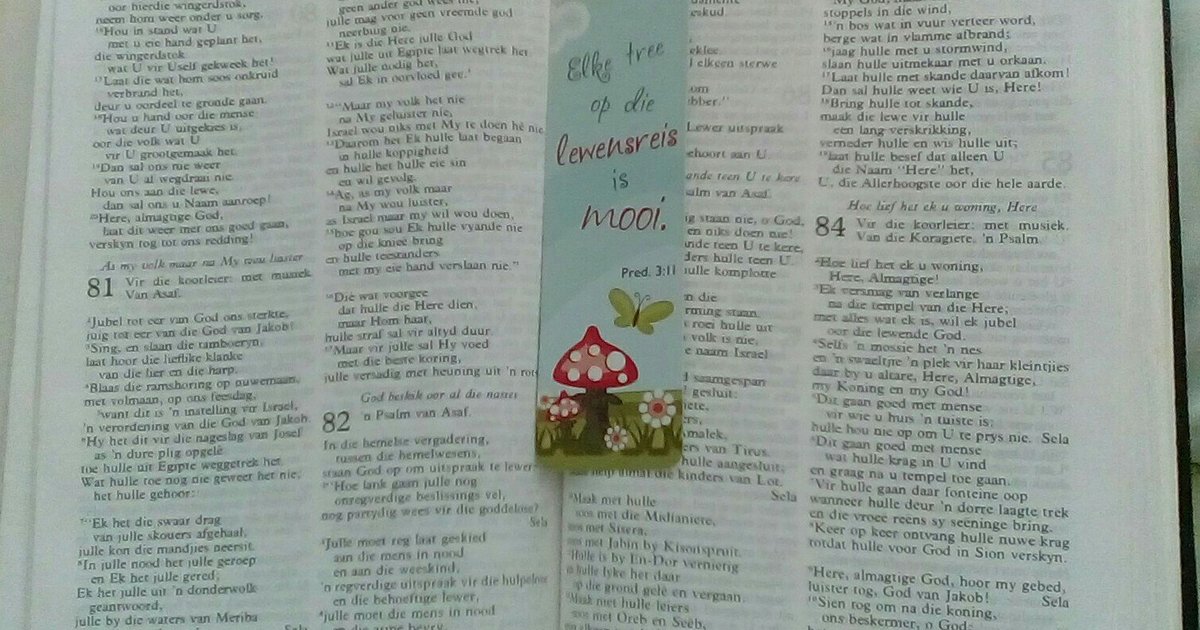 oor hierdie wingerdstok,
neem hom weer onder u sorg.
¹⁶Hou in stand wat U
met u eie hand geplant het,
die wingerdstok
wat U vir Uself gekweek het!
¹⁷Laat die wat hom soos onkruid
verbrand het,
deur u oordeel te gronde gaan.
¹⁸Hou u hand oor die mense
wat deur U uitgekies is,
oor die volk wat U
vir U grootgemaak het.
¹⁹Dan sal ons nie weer
van U af wegdraai nie.
Hou ons aan die lewe,
dan sal ons u Naam aanroep!
²⁰Here, almagtige God,
laat dit weer met ons goed gaan,
verskyn tog tot ons redding!
As my volk maar na My wou luister
81 Vir die koorleier: met musiek.
Van Asaf.
²Jubel tot eer van God ons sterkte,
juig tot eer van die God van Jakob!
³Sing, en slaan die tamboeryn,
laat hoor die lieflike klanke
van die lier en die harp.
⁴Blaas die ramshoring op nuwemaan,
met volmaan, op ons feesdag,
⁵want dit is 'n instelling vir Israel,
'n verordening van die God van Jakob.
⁶Hy het dit vir die nageslag van Josef
as 'n dure plig opgelê
toe hulle uit Egipte weggetrek het.
Wat hulle toe nog nie geweet het nie,
het hulle gehoor:
⁷"Ek het die swaar drag
van julle skouers afgehaal,
julle kon die mandjies neersit.
⁸In julle nood het julle geroep
en Ek het julle gered;
Ek het julle uit 'n donderwolk
geantwoord,
julle by die waters van Meriba
Sela
geen ander god wees nie,
julle mag voor geen vreemde god
neerbuig nie.
¹¹Ek is die Here julle God
wat julle uit Egipte laat wegtrek het.
Wat julle nodig het,
sal Ek in oorvloed gee.'
¹²"Maar my volk het nie
na My geluister nie,
Israel wou niks met My te doen hê nie.
¹³Daarom het Ek hulle laat begaan
in hulle koppigheid
en hulle het hulle eie sin
en wil gevolg.
¹⁴Ag, as my volk maar
na My wou luister,
as Israel maar my wil wou doen,
¹⁵hoe gou sou Ek hulle vyande nie
op die knieë bring
en hulle teëstanders
met my eie hand verslaan nie."
¹⁶Die wat voorgee
dat hulle die Here dien,
maar Hom haat,
hulle straf sal vir altyd duur.
¹⁷Maar vir julle sal Hy voed
met die beste koring,
julle versadig met heuning uit 'n rots
God beskik oor al die nasies
82 'n Psalm van Asaf.
In die hemelse vergadering,
tussen die hemelwesens,
staan God op om uitspraak te lewer:
²"Hoe lank gaan julle nog
onregverdige beslissings vel,
nog partydig wees vir die goddelose?
Sela
³Julle moet reg laat geskied
aan die mens in nood
en aan die weeskind,
'n regverdige uitspraak vir die hulpelose
en die behoeftige lewer,
⁴julle moet die mens in nood
Elke tree
op die
lewensreis
is
mooi.
Pred. 3:11
eskud.
eklee.
elkeen sterwe
om
bber."
Lewer uitspraak
ehoort aan U.
ande teen U te kere
salm van Asaf.
ig staan nie, o God,
en niks doen nie!
ande teen U te kere,
ders hulle teen U.
ulle komplotte
n die
rming staan.
roei hulle uit
volk is nie,
e naam Israel
saamgespan
gesluit:
malek,
ers van Tirus.
hulle aangesluit;
help almal die kinders van Lot.
Sela
¹⁰Maak met hulle
soos met die Midianiete,
soos met Sisera,
soos met Jabin by Kisonspruit.
¹¹Hulle is by En-Dor vernietig
hulle lyke het daar
op die grond gelê en vergaan.
¹²Maak met hulle leiers
soos met Oreb en Seëb,
stoppels in die wind,
¹⁵'n bos wat in vuur verteer word,
berge wat in vlamme afbrand;
¹⁶jaag hulle met u stormwind,
slaan hulle uitmekaar met u orkaan.
¹⁷Laat hulle met skande daarvan afkom!
Dan sal hulle weet wie U is, Here!
¹⁸Bring hulle tot skande,
maak die lewe vir hulle
een lang verskrikking,
verneder hulle en wis hulle uit;
¹⁹laat hulle besef dat alleen U
die Naam "Here" het,
U, die Allerhoogste oor die hele aarde.
Hoe lief het ek u woning, Here
84 Vir die koorleier: met musiek.
Van die Koragiete. 'n Psalm.
²Hoe lief het ek u woning,
Here, Almagtige!
³Ek versmag van verlange
na die tempel van die Here;
met alles wat ek is, wil ek jubel
oor die lewende God.
⁴Selfs 'n mossie het 'n nes
en 'n swaeltjie 'n plek vir haar kleintjies
daar by u altare, Here, Almagtige,
my Koning en my God!
⁵Dit gaan goed met mense
vir wie u huis 'n tuiste is:
hulle hou nie op om U te prys nie. Sela
⁶Dit gaan goed met mense
wat hulle krag in U vind
en graag na u tempel toe gaan.
⁷Vir hulle gaan daar fonteine oop
wanneer hulle deur 'n dorre laagte trek
en die vroeë reëns sy seëninge bring.
⁸Keer op keer ontvang hulle nuwe krag
totdat hulle voor God in Sion verskyn.
⁹Here, almagtige God, hoor my gebed,
luister tog, God van Jakob! Sela
¹⁰Sien tog om na die koning,
ons beskermer, o God.